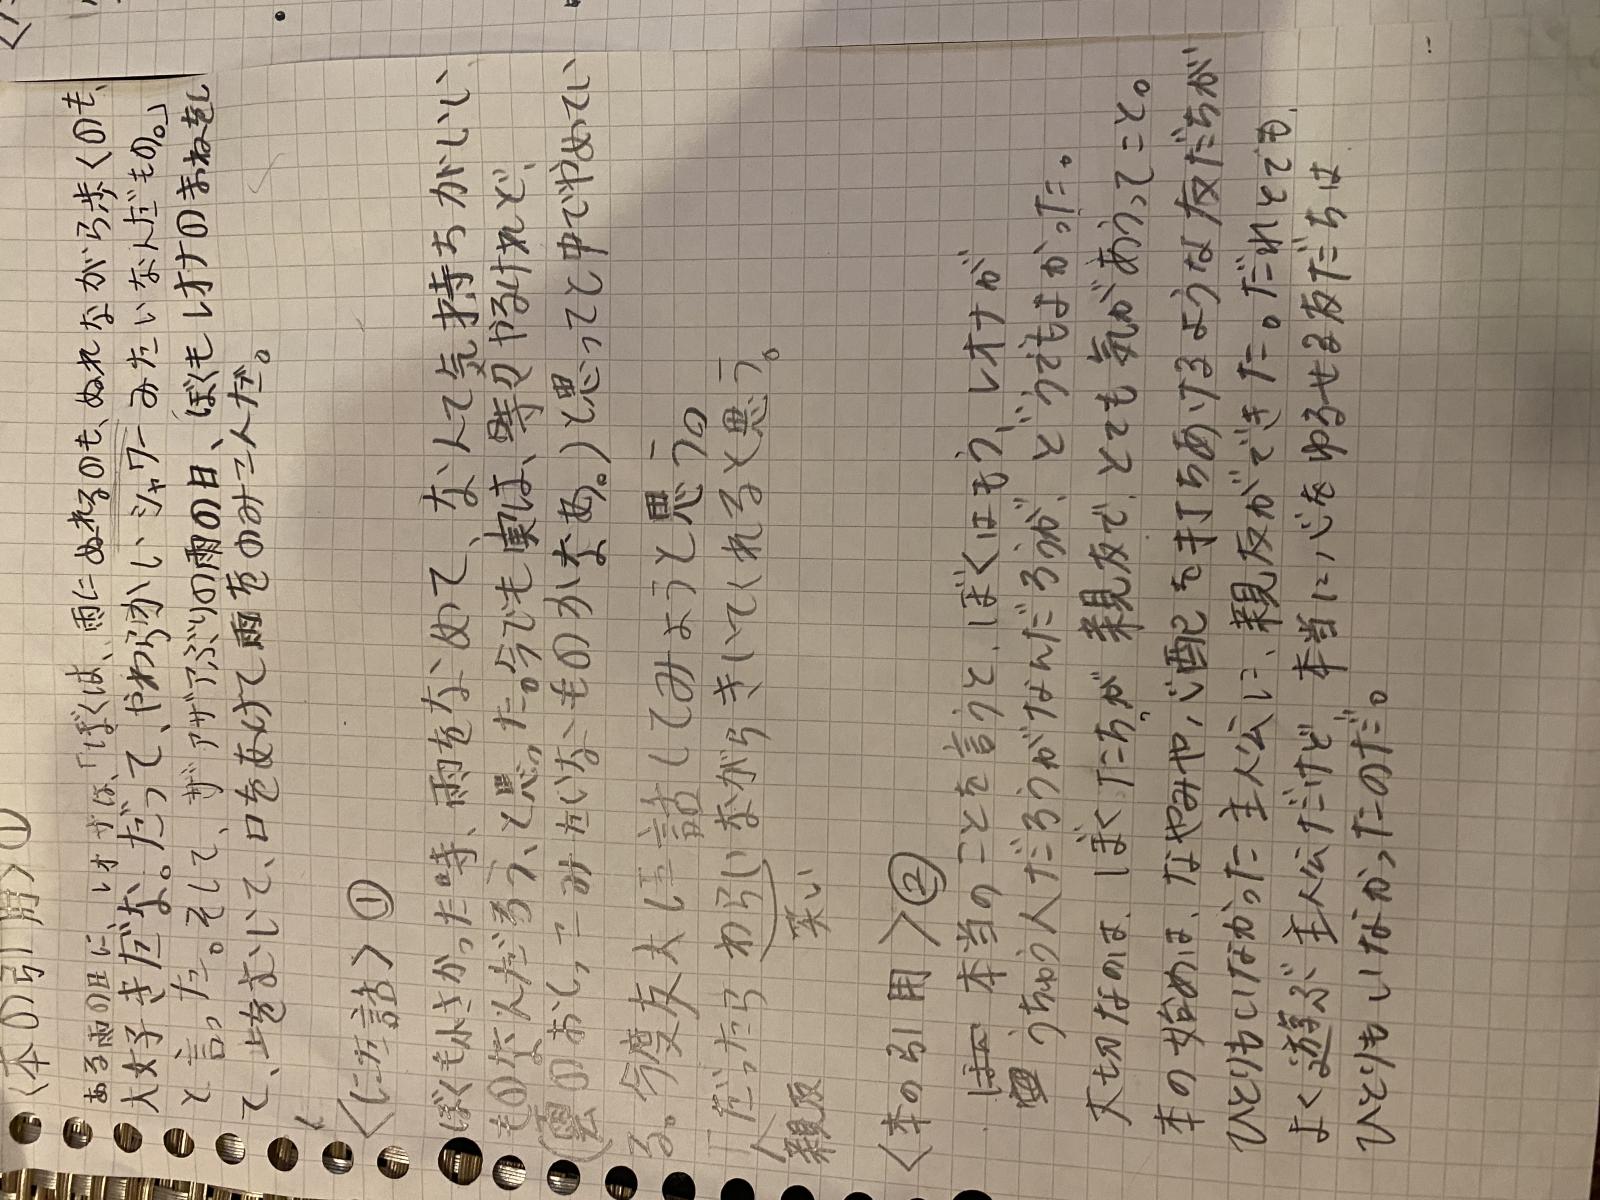 <本の引用>①
ある雨の日に、レオナは、「ぼくは、雨にぬれるのも、ぬれながら歩くのも、
大好きだよ。だって、やわらかいシャワーみたいなんだもの。」
と言った。そして、ザアザアぶりの雨の日、ぼくもレオナのまねをし
て、上をむいて、口をあけて雨をのみこんだ。
<にた話>①
ぼくも小さかった時、雨をなめて、なんて気持ちがいい
ものなんだろう、と思った。今でも実は、時々やるけれど、
(雲のおしっこみたいなものかなあ。)と思って途中でやめてい
る。今度友夫に話してみようと思う。
「だったらわらいながらきいてくれると思う。
親友
笑い
<本の引用>②
本当のことを言うと、ぼくはもう、レオナが
うちゅう人だろうがなんだろうが、どうでもよかった。
大切なのは、ぼくたちが親友で、とても気があうってこと。
本の始めは、なやみや、心配を打ちあけるような友だちが
ひとりもいなかった主人公に、親友ができた。だれとでも、
よく遊ぶ主人公だけど本当に心をゆるせる友だちは
ひとりもいなかったのだ。